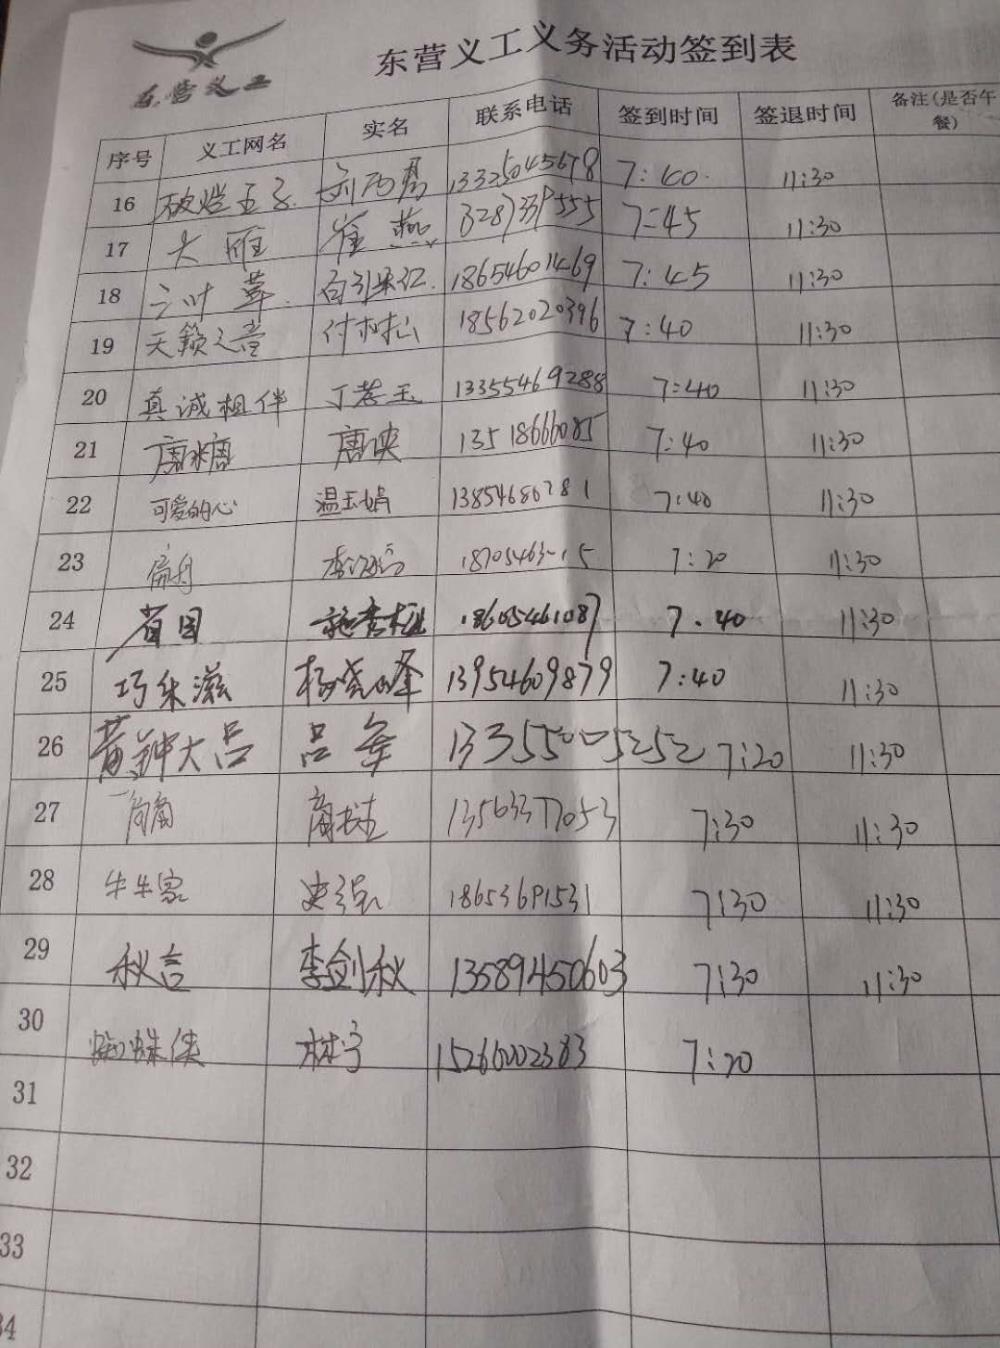 东营义工
东营义工义务活动签到表
序号 义工网名 实名 联系电话 签到时间 签退时间 备注(是否午餐)
16 破烂王子 13325045678 7:40 11:30
17 大雁 崔燕 7:45 11:30
18 三叶草 18654601469 7:45 11:30
19 天籁之音 付树松 18562020396 7:40 11:30
20 真诚相伴 丁莲玉 13355469288 7:40 11:30
21 唐糖 唐映 13518666085 7:40 11:30
22 可爱的心 温玉娟 7:40 11:30
23 扁舟 7:20 11:30
24 18605461087 7.40 11:30
25 巧乐滋 杨晓峰 13954609879 7:40 11:30
26 黄钟大吕 吕军 13355005252 7:20 11:30
27 13563377053 7:30 11:30
28 牛牛家 史强 18653691531 7:30 11:30
29 秋言 李剑秋 13589450603 7:30 11:30
30 蜘蛛侠 林宁 15266002383 7:20
31
32
33
34